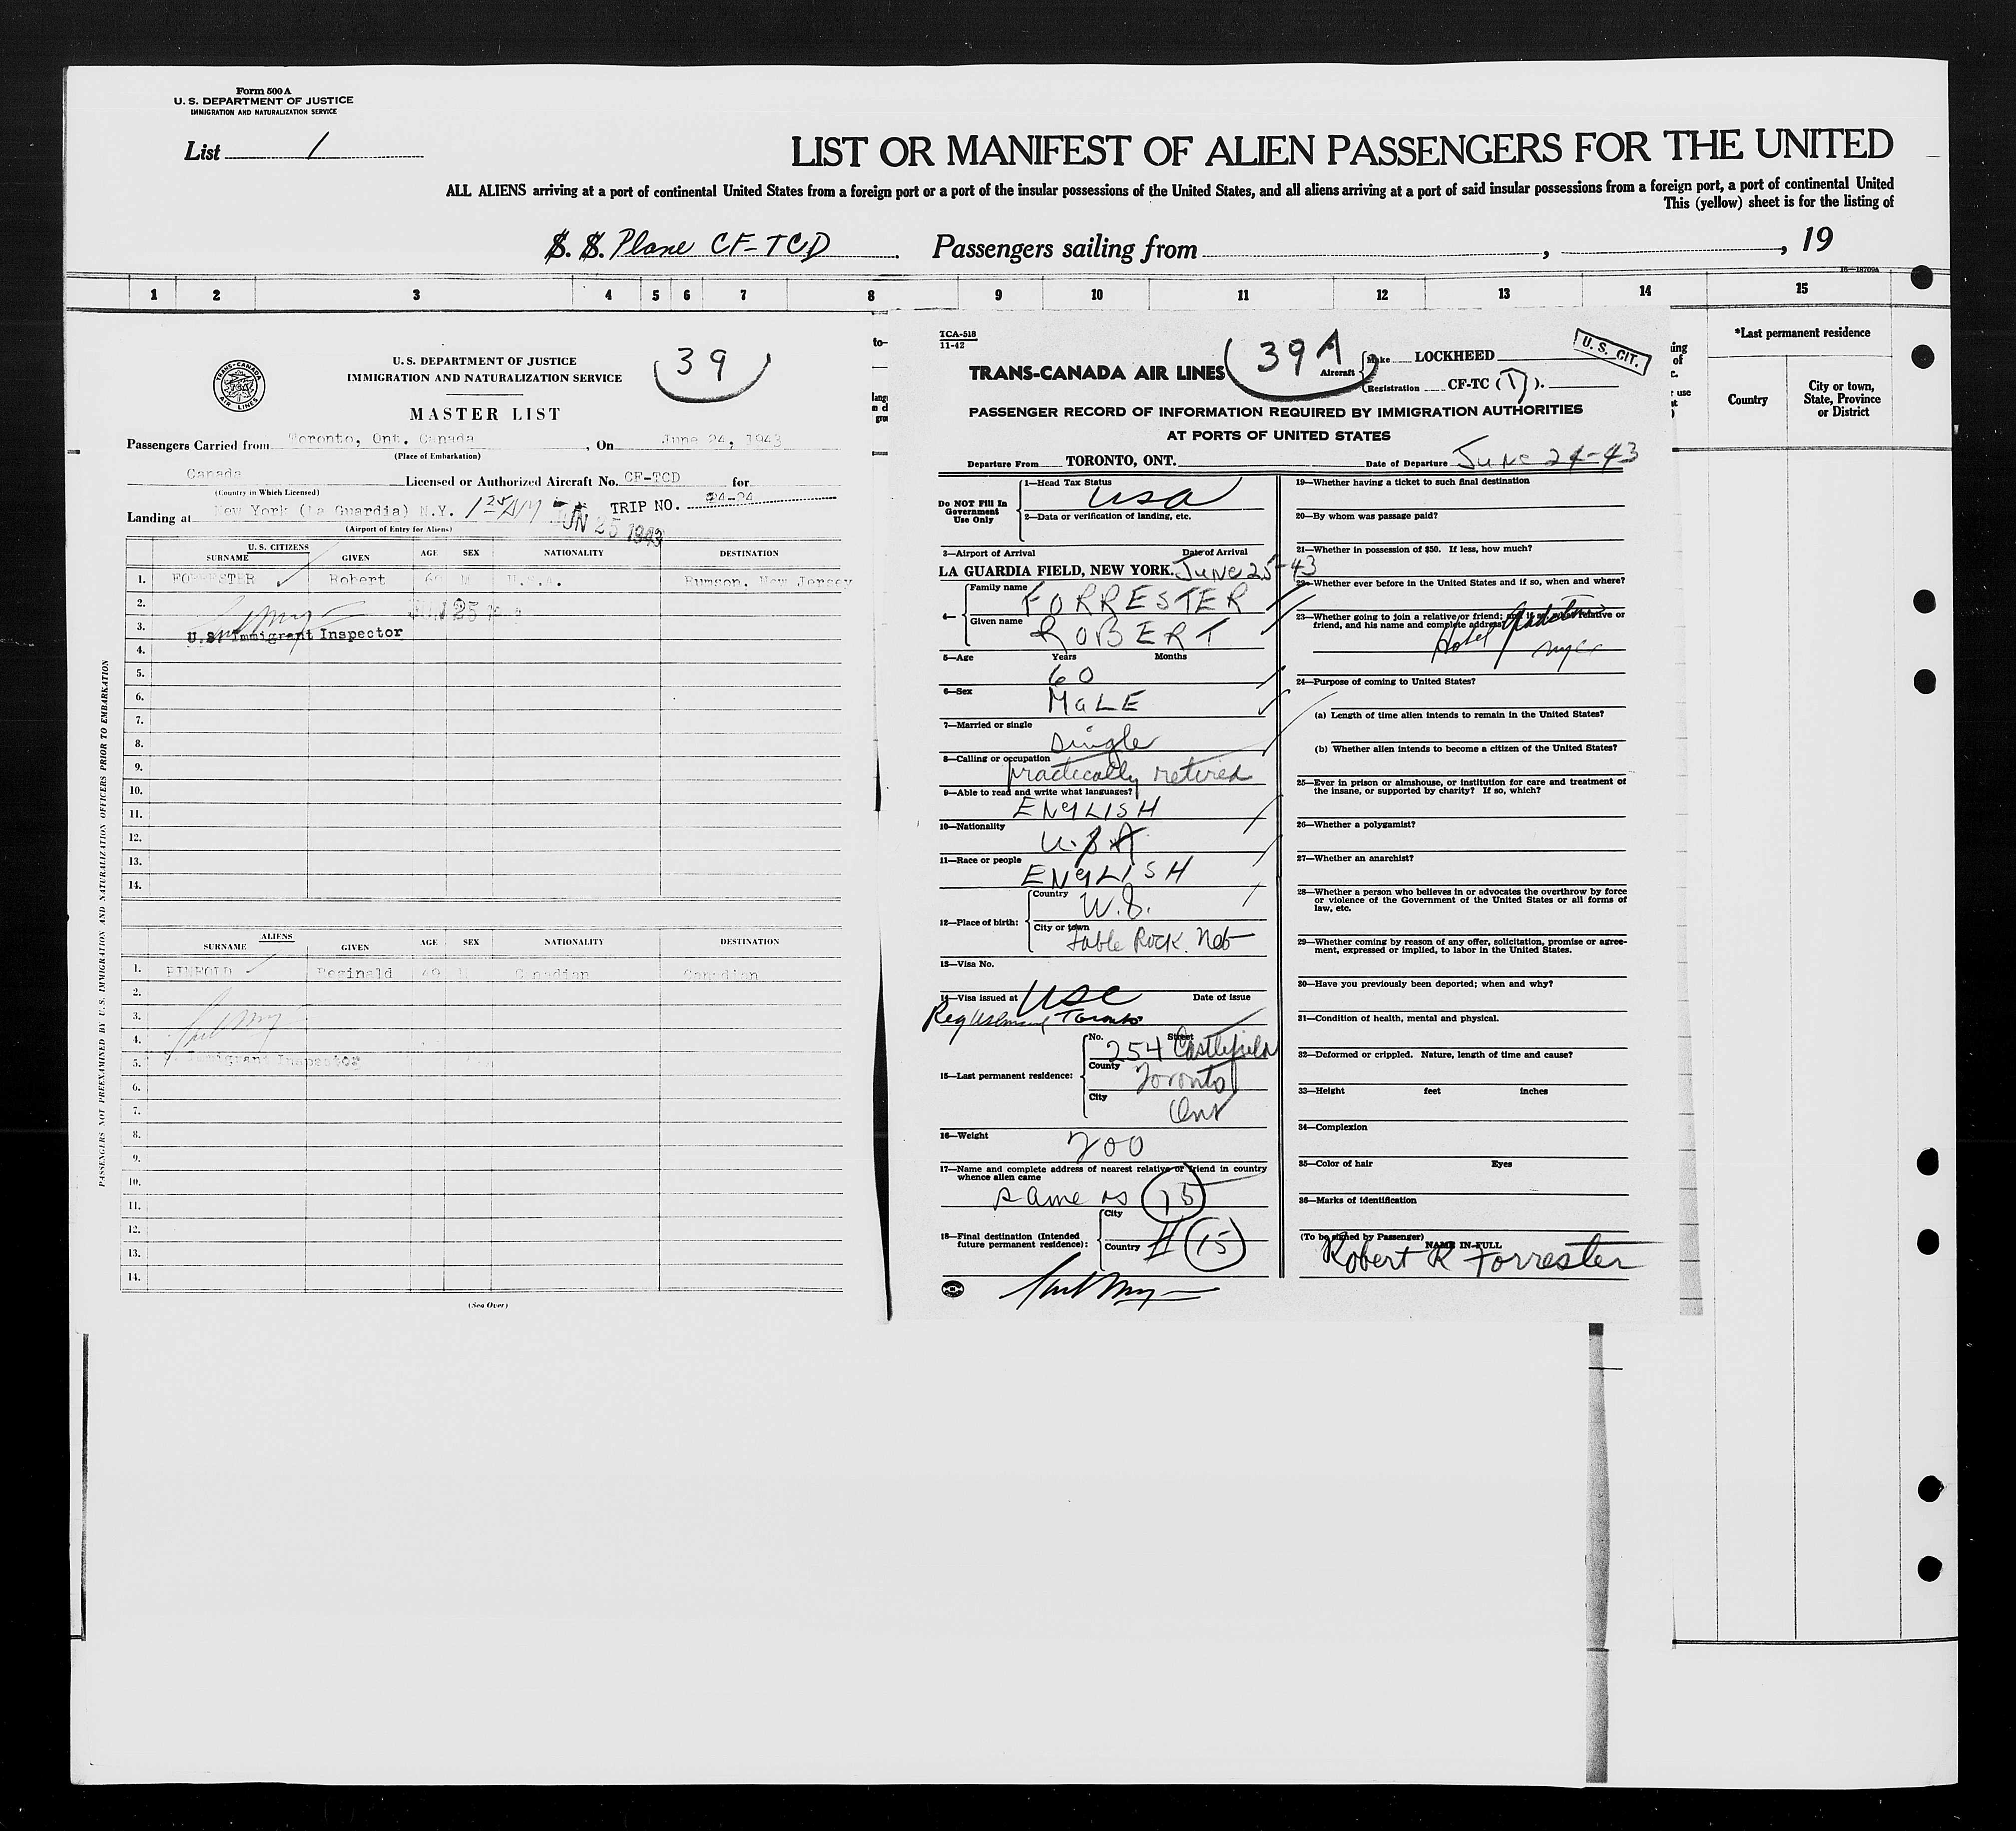 Form 500 A
U. S. DEPARTMENT OF JUSTICE
IMMIGRATION AND NATURALIZATION SERVICE
List 1
LIST OR MANIFEST OF ALIEN PASSENGERS FOR THE UNITED
ALL ALIENS arriving at a port of continental United States from a foreign port or a port of the insular possessions of the United States, and all aliens arriving at a port of said insular possessions from a foreign port, a port of continental United
This (yellow) sheet is for the listing of
S. S. Plane CF-TCD. Passengers sailing from , , 19
16—18709A
1 2 3 4 5 6 7 8 9 10 11 12 13 14 15
TRANS-CANADA AIR LINES
U. S. DEPARTMENT OF JUSTICE
IMMIGRATION AND NATURALIZATION SERVICE
39
MASTER LIST
Passengers Carried from Toronto, Ont. Canada, On June 24, 1943
(Place of Embarkation)
Canada Licensed or Authorized Aircraft No. CF-TCD for
(Country in Which Licensed)
TRIP NO. 24-24
Landing at New York (La Guardia) N.Y. 1 25 AM JUN 25 1943
(Airport of Entry for Aliens)
U. S. CITIZENS
SURNAME GIVEN AGE SEX NATIONALITY DESTINATION
1. FORRESTER Robert 60 M U.S.A. Rumson, New Jersey
2. JUN 25
3. U.S. Immigrant Inspector
4.
5.
6.
7.
8.
9.
10.
11.
12.
13.
14.
ALIENS
SURNAME GIVEN AGE SEX NATIONALITY DESTINATION
1. PINFOLD Reginald 49 M Canadian Canadian
2.
3.
4.
5. Immigrant Inspector
6.
7.
8.
9.
10.
11.
12.
13.
14.
(See Over)
PASSENGERS NOT PREEXAMINED BY U.S. IMMIGRATION AND NATURALIZATION OFFICERS PRIOR TO EMBARKATION
TCA-518
11-42
39A
U. S. CIT.
TRANS-CANADA AIR LINES
Aircraft
Make LOCKHEED
Registration CF-TC (D).
PASSENGER RECORD OF INFORMATION REQUIRED BY IMMIGRATION AUTHORITIES
AT PORTS OF UNITED STATES
Departure From TORONTO, ONT. Date of Departure June 24-43
Do NOT Fill In
Government
Use Only
1—Head Tax Status
USA
2—Data or verification of landing, etc.
3—Airport of Arrival Date of Arrival
LA GUARDIA FIELD, NEW YORK. June 25-43
4—
Family name FORRESTER
Given name ROBERT
5—Age Years Months
60
6—Sex MaLE
7—Married or single
single
8—Calling or occupation
practically retired
9—Able to read and write what languages?
ENGLISH
10—Nationality
U.S.A
11—Race or people
ENGLISH
12—Place of birth:
Country U.S.
City or town Table Rock. Neb
13—Visa No.
14—Visa issued at USC Date of issue
Toronto
15—Last permanent residence:
No. Street
254 Castlefield
County Toronto
City Ont
16—Weight 200
17—Name and complete address of nearest relative or friend in country
whence alien came
same as 15
18—Final destination (Intended
future permanent residence):
City
Country (15)
19—Whether having a ticket to such final destination
20—By whom was passage paid?
21—Whether in possession of $50. If less, how much?
22—Whether ever before in the United States and if so, when and where?
23—Whether going to join a relative or friend; and if so, what relative or
friend, and his name and complete address
Hotel
NYC
24—Purpose of coming to United States?
(a) Length of time alien intends to remain in the United States?
(b) Whether alien intends to become a citizen of the United States?
25—Ever in prison or almshouse, or institution for care and treatment of
the insane, or supported by charity? If so, which?
26—Whether a polygamist?
27—Whether an anarchist?
28—Whether a person who believes in or advocates the overthrow by force
or violence of the Government of the United States or all forms of
law, etc.
29—Whether coming by reason of any offer, solicitation, promise or agree-
ment, expressed or implied, to labor in the United States.
30—Have you previously been deported; when and why?
31—Condition of health, mental and physical.
32—Deformed or crippled. Nature, length of time and cause?
33—Height feet inches
34—Complexion
35—Color of hair Eyes
36—Marks of identification
(To be signed by Passenger) NAME IN FULL
Robert R Forrester
*Last permanent residence
Country
City or town,
State, Province
or District